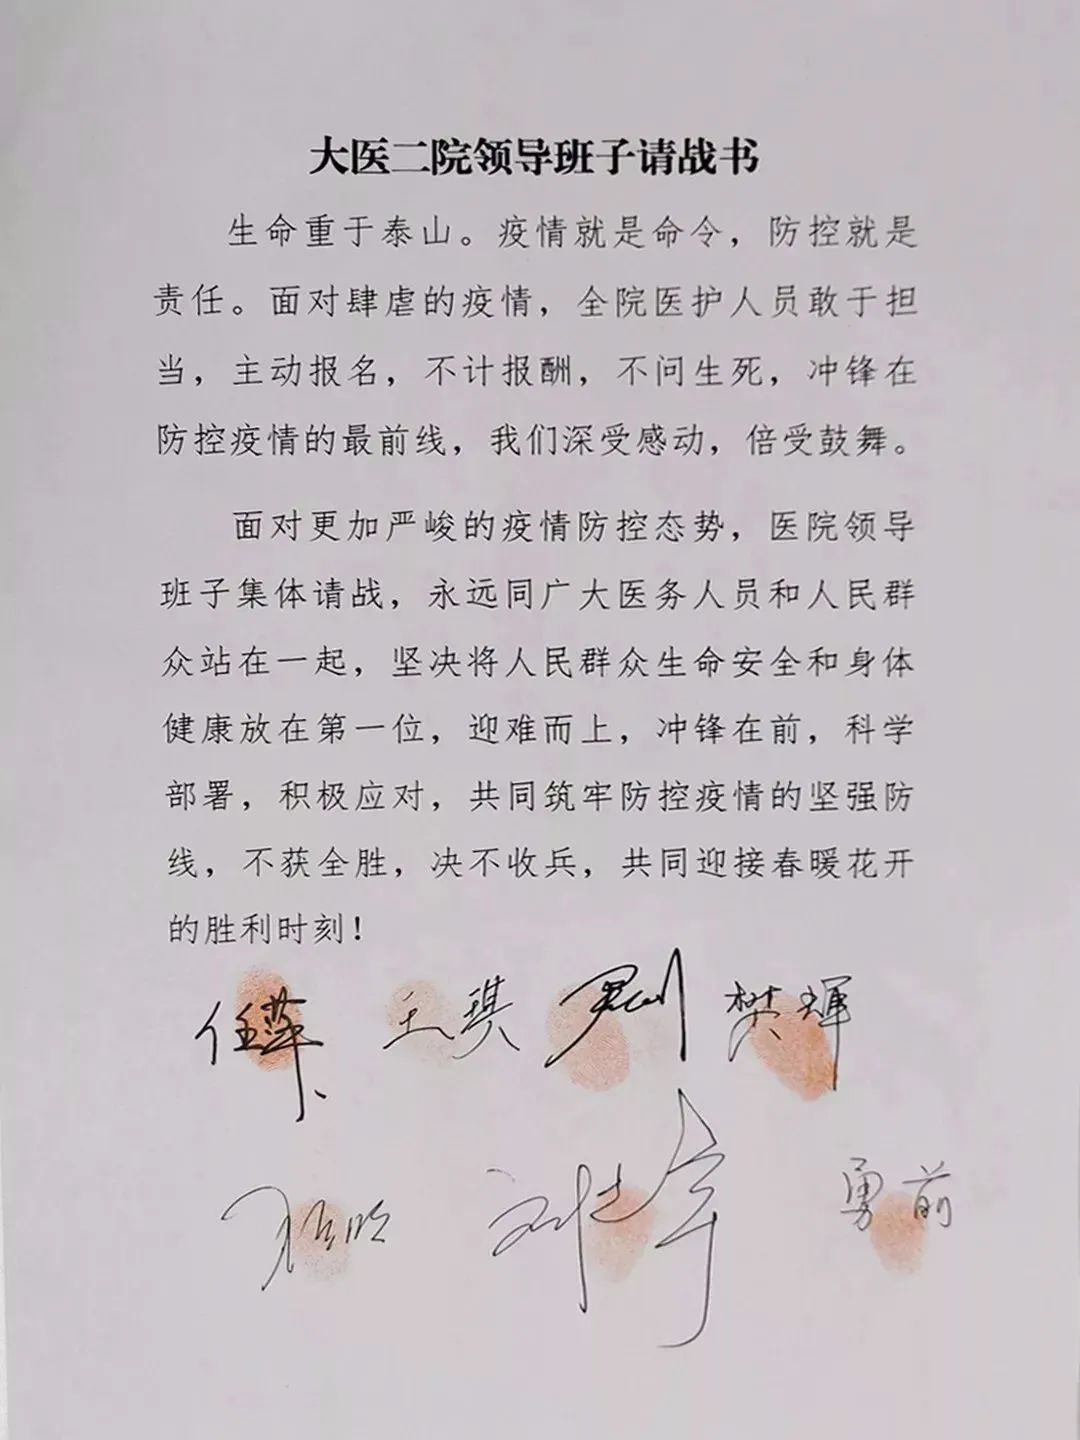 大医二院领导班子请战书
生命重于泰山。疫情就是命令，防控就是
责任。面对肆虐的疫情，全院医护人员敢于担
当，主动报名，不计报酬，不问生死，冲锋在
防控疫情的最前线，我们深受感动，倍受鼓舞。
面对更加严峻的疫情防控态势，医院领导
班子集体请战，永远同广大医务人员和人民群
众站在一起，坚决将人民群众生命安全和身体
健康放在第一位，迎难而上，冲锋在前，科学
部署，积极应对，共同筑牢防控疫情的坚强防
线，不获全胜，决不收兵，共同迎接春暖花开
的胜利时刻！
任萍 王琪 樊晖
刘志宇 勇前